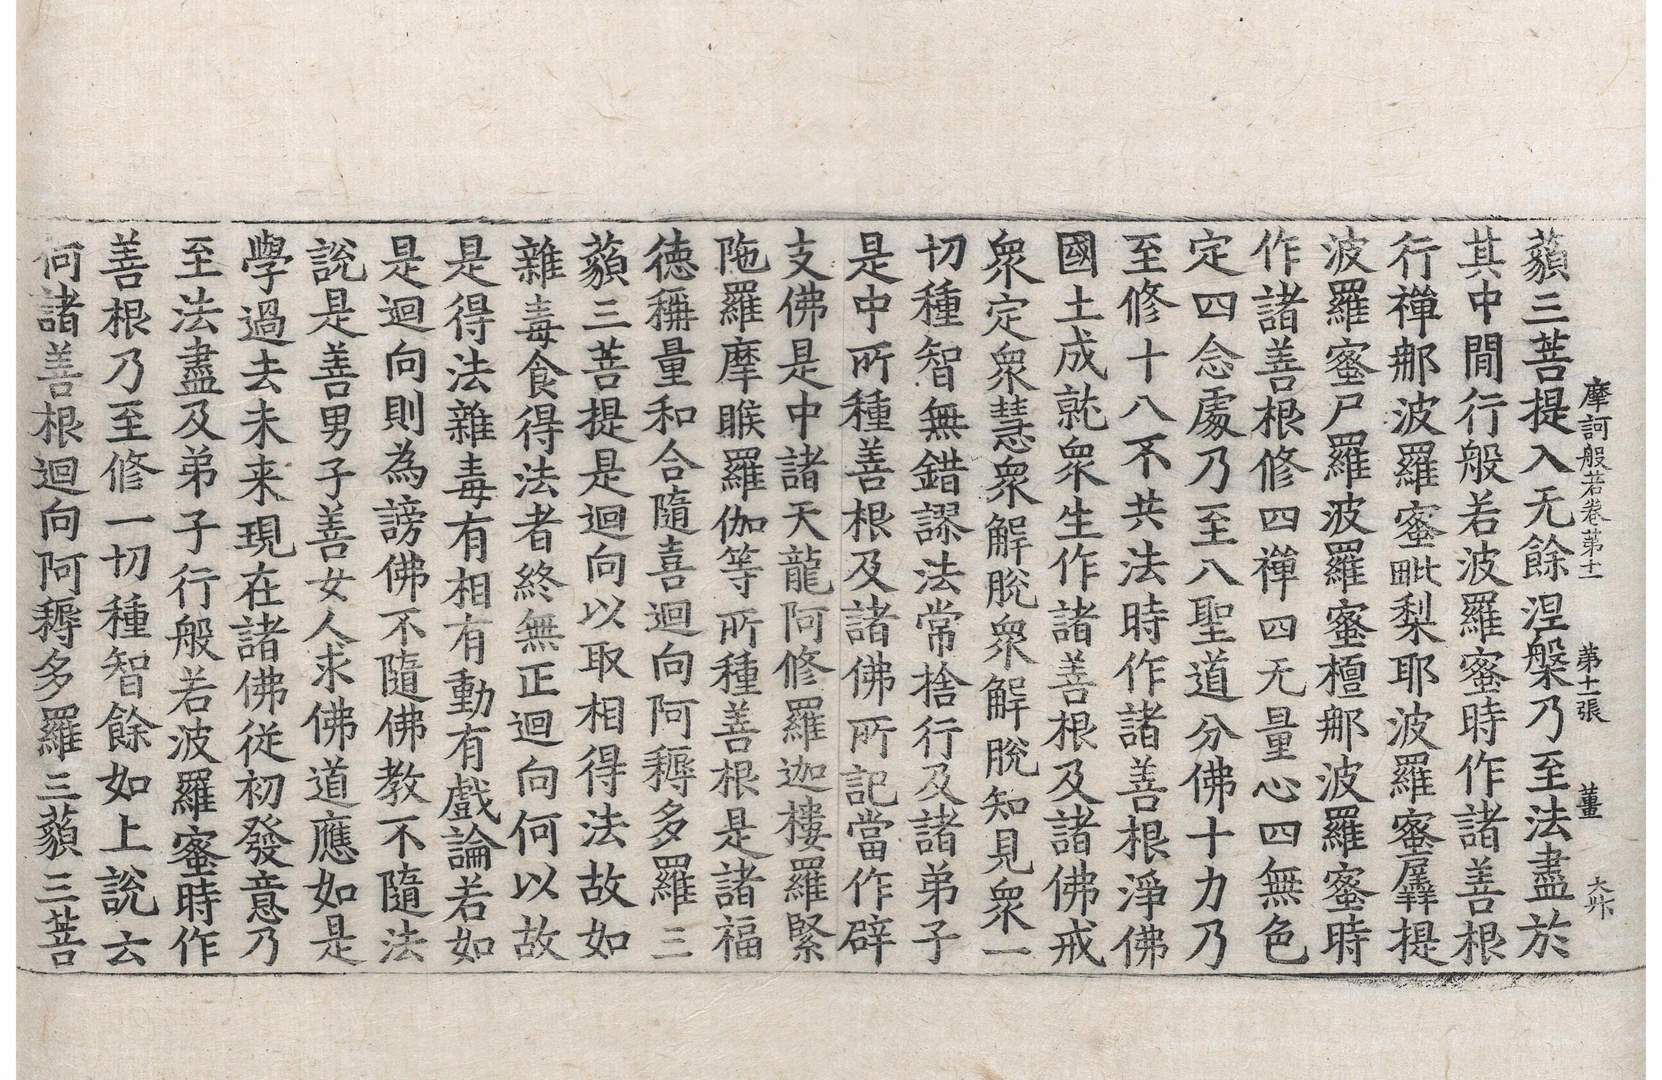 摩訶般若卷第十一 第十一張 薑
藐三菩提入无餘涅槃乃至法盡於
其中間行般若波羅蜜時作諸善根
行禪那波羅蜜毗梨耶波羅蜜羼提
波羅蜜尸羅波羅蜜檀那波羅蜜時
作諸善根修四禪四无量心四無色
定四念處乃至八聖道分佛十力乃
至修十八不共法時作諸善根淨佛
國土成就衆生作諸善根及諸佛戒
衆定衆慧衆解脫衆解脫知見衆一
切種智無錯謬法常捨行及諸弟子
是中所種善根及諸佛所記當作辟
支佛是中諸天龍阿修羅迦樓羅緊
陁羅摩睺羅伽等所種善根是諸福
德稱量和合隨喜迴向阿耨多羅三
藐三菩提是迴向以取相得法故如
雜毒食得法者終無正迴向何以故
是得法雜毒有相有動有戲論若如
是迴向則為謗佛不隨佛教不隨法
說是善男子善女人求佛道應如是
學過去未来現在諸佛從初發意乃
至法盡及弟子行般若波羅蜜時作
善根乃至修一切種智餘如上說云
何諸善根迴向阿耨多羅三藐三菩